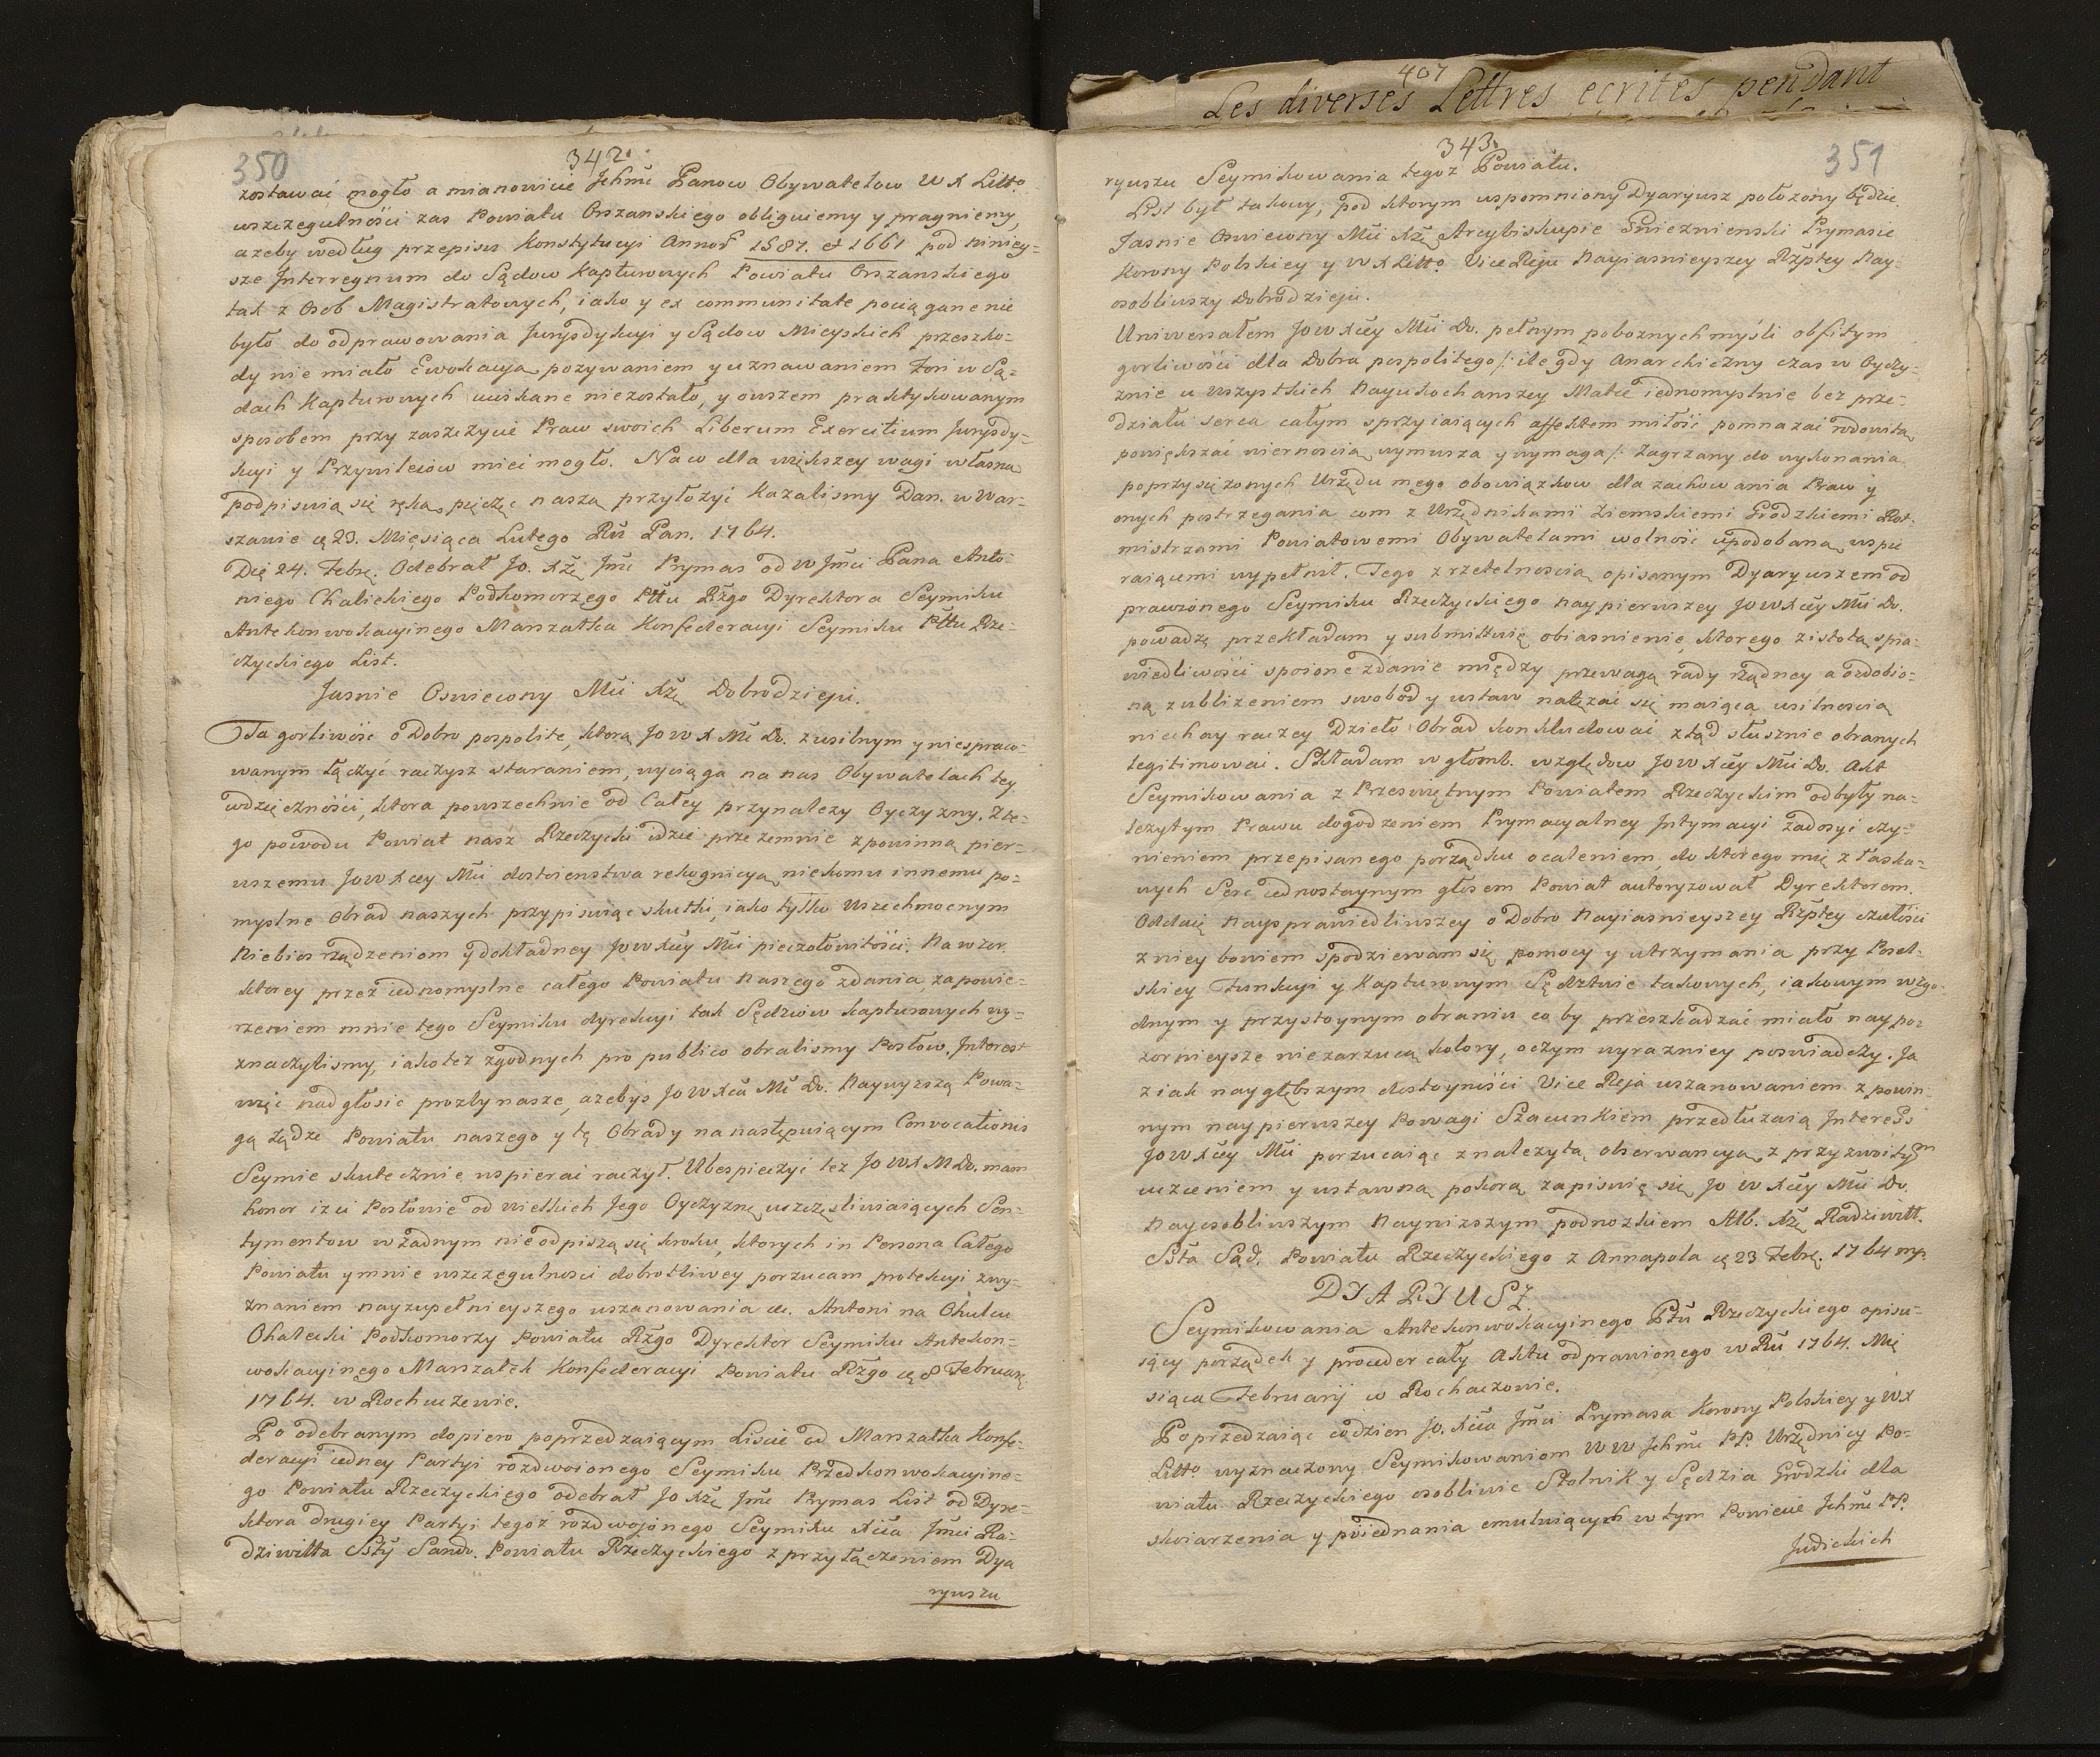 350
342.
zostawać mogło a mianowicie Jchmć Panow Obywatelow W X Litt.º
wszczegulności zas Powiatu Orszanskiego obliguiemy y pragniemy,
azeby według przepisu Konstytucyi Annor 1587. et 1661 pod niniey=
sze Interregnum do Sądow Kapturowych Powiatu Orszanskiego
tak z Osob Magistratowych, iako y ex communitate pociągane nie
było do odprawowania Jurysdykcyi y Sądow Mieyskich przeszko=
dy nie miało Ewokacyą pozywaniem y uznawaniem Zon w Są=
dach Kapturowych uciskane niezostało, y owszem praktykowanym
sposobem przy zaszczycie Praw swoich Liberum Exercitium Jurysdy=
kcyi y Przywileiow mieć mogło. Na co dla większey wagi własną
podpisuią się ręką, pieczęć naszą przyłozyć kazalismy Dan. w War=
szawie d 23. Miesiąca Lutego Rū Pan. 1764.
Die 24. Febr: Odebrał Jo. Xże Jmć Prymas od W Jmci Pana Anto=
niego Chaleckiego Podkomorzego Pttu Rzgo Dyrektora Seymiku
Antekonwokacyinego Marszałka Konfederacyi Seymiku Pttu Rze=
czyckiego List.
Jasnie Oswiecony Mći Xże Dobrodzieju.
Ta gorliwość o Dobro pospolite, ktorą JO W X Mć Do. z usilnym y niespraco=
wanym łączyć raczysz staraniem, wyciąga na nas Obywatelach tey
wdzięczności, ktora powszechnie od Całey przynalezy Oyczyzny. Z te=
go powodu Powiat nasz Rzeczycki idzie przezemnie z powinną pier=
wszemu JOWXcey Mći dostoienstwa rekognicyą, niekomu innemu po=
myslne Obrad naszych przypisuiąc skutki, iako tylko Wszechmocnym
Niebios rządzeniom y dokładney JOWXcey Mći pieczołowitości. Na wzor
ktorey przez iednomyslne całego Powiatu naszego zdania, zapowie=
rzeniem mnie tego Seymiku dyrekcyi tak Sędziow Kapturowych wy=
znaczylismy, iako tez zgodnych pro publico obralismy Posłow. Interest
więc nad głosić prozby nasze, azebyś JOWXća Mć Do. Naywyzszą Powa=
gą Ządze Powiatu naszego y tę Obrady na następuiącym Convocationis
Seymie skutecznie wspierać raczył. Ubespieczyć tez JO WX M Do. mam
honor iz ci Posłowie od wielkich Jego Oyczyznę uszczęsliwiaiących Sen=
tymentow w zadnym nie odpiszą się kroku, ktorych in Persona Całego
Powiatu y mnie wszczegulnosci dobrotliwey porzucam protekcyi z wy=
znaniem nayzupełnieyszego uszanowania etc. Antoni na Chulcu
Chalecki Podkomorzy Powiatu Rzgo Dyrektor Seymiku Antekon=
wokacyinego Marszałek Konfederacyi Powiatu Rzgo d 8 Februarii
1764. w Rochaczewie.
Po odebranym dopiero poprzedzaiącym Liscie od Marszałka Konfe=
deracyi iedney Partyi rozdwoionego Seymiku Przedkonwokacyine=
go Powiatu Rzeczyckiego odebrał Jo Xże Jmć Prymas List od Dyre=
ktora drugiey Partyi tegoz rozdwojonego Seymiku Xcia Jmci Ra=
dziwiłła Ssty Sando. Powiatu Rzeczyckiego z przyłączeniem Dya
ryuszu
407
Les diverses Lettres ecrites pendant
343.
351
ryuszu Seymikowania tegoz Powiatu.
List był takowy, pod ktorym wspomniony Dyaryusz połozony będzie.
Jasnie Oswiecony Mći Xże Arcybiskupie Gnieznienski Prymasie
Korony Polskiey y W X Litto. Vice Reju Nayiasnieyszey Rzptey Nay=
osobliwszy Dobrodzieju.
Uniwersałem JOWXcey Mći Do. pełnym poboznych mysli obfitym
gorliwości dla Dobra pospolitego /: ile gdy Anarchiczny czas w Oyczy=
znie u wszystkich Nayukochanszey Matce iednomyslnie bez prze=
działu serca całym sprzyiaiących affektem miłość pomnazać wdowitą
powiększać wiernoscią wymusza y wymaga /: Zagrzany do wykonania
poprzysięzonych Urzędu mego obowiązkow dla zachowania Praw y
onych postrzegania com z Urzędnikami Ziemskiemi Grodzkiemi Rot=
mistrzami Powiatowemi Obywatelami wolność upodobaną wspie
raiącemi wypełnił. Tego z rzetelnoscią opisanym Dyaryuszem od
prawionego Seymiku Rzeczyckiego naypierwszey JOWXcey Mći Do.
powadze przekładam y submittuię obiasnienie, ktorego z istotą spra=
wiedliwości spoione zdanie między przewagą rady rządney a ozdobio=
ną z ublizeniem swobod y ustaw natęzać się maiącą usilnoscią
niechay raczey Dzieło Obrad konkludować ztąd słusznie obranych
legitimować. Składam w głomb. względow JOWXcey Mći Do. Akt
Seymikowania z Przeswiętnym Powiatem Rzeczyckim odbyły na=
lezytym Prawu dogodzeniem Prymacyalney Intymacyi zadosyć czy=
nieniem przepisanego porządku ocaleniem, do ktorego mię z łaska=
wych Serc iednostaynym głosem Powiat autoryzował Dyrektorem.
Oddaię Naysprawiedliwszey o Dobro Nayiasnieyszey Rzptey czułości
z niey bowiem spodziewam się pomocy y utrzymania przy Posel=
skiey Funkcyi y Kapturowym Sędztwie takowych, iakowym w zgo=
dnym y przystoynym obraniu co by przeszkadzać miało naypo=
zornieysze niezarzucą kolory, oczym wyrazniey poswiadczy. Ja
z iak naygłębszym dostoyności Vice Reja uszanowaniem z powin=
nym naypierwszey Powagi Szacunkiem przedłuzaią Interess
JOWXcey Mći porzucaiąc z nalezytą obserwancyą, z przyzwoitym
uczceniem y ustawną pokorą zapisuię się JO W Xcey Mći Do.
Nayosobliwszym Naynizszym podnozkiem Alb. Xże Radziwiłł.
Ssta Sąd. Powiatu Rzeczyckiego z Annapola d 23 Febr. 1764 mp.
DYARYUSZ.
Seymikowania Antekonwokacyinego Pttū Rzeczyckiego opisu=
iący porządek y proceder cały Aktu odprawionego w Rū 1764. Mie
siąca Februarij w Rochaczowie.
Poprzedzaiąc codzien Jo. Xcia Jmći Prymasa Korony Polskiey y WX
Litto. wyznaczony Seymikowaniom WW Jchmć PP. Urzędnicy Po=
wiatu Rzeczyckiego osobliwie Stolnik y Sędzia Grodzki dla
skoiarzenia y poiednania emuluiących w tym Powiecie Jchmć PP.
Judickich